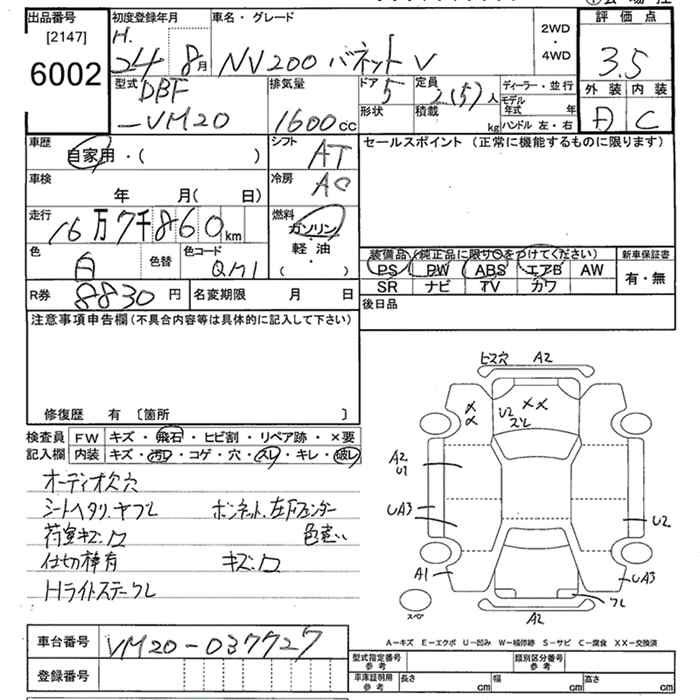 出品番号
[2147]
6002
初度登録年月
H.
24 8月
車名・グレード
NV200 バネットV
2WD
・
4WD
評価点
3.5
外装 内装
D C
型式
DBF
-VM20
排気量
1600cc
ドア
5
形状
定員
2(5)人
積載
kg
ディーラー・並行
モデル年式 年
ハンドル 左・右
車歴
自家用・( )
シフト
AT
車検
年 月( 日)
冷房
AC
走行
16万7千860km
燃料
ガソリン
軽・油
( )
色
白
色替
色コード
QM1
R券
8830円
名変期限 月 日
セールスポイント(正常に機能するものに限ります)
装備品(純正品に限り○をつけてください)
PS PW ABS エアB AW
SR ナビ TV カワ
新車保証書
有・無
後日品
注意事項申告欄(不具合内容等は具体的に記入して下さい)
修復歴 有 [箇所 ]
検査員 FW キズ・飛石・ヒビ割・リペア跡・×要
記入欄 内装 キズ・汚れ・コゲ・穴・スレ・キレ・破レ
オーディオ欠穴
シートヘタリ.ヤブレ
荷室キズ.凹
仕切棒有
Hライトステークレ
ボンネット.左Fフェンダー
色違い
キズ.凹
ビス穴 A2
XX
U2
スレ
XX
A2
U1
UA3
A1
U2
UA3
ワレ
A2
スペア
A-キズ E-エクボ U-凹み W-補修跡 S-サビ C-腐食 XX-交換済
車台番号
VM20-037727
登録番号
型式指定番号
参考
類別区分番号
参考
車庫証明用
参考
長さ cm
幅 cm
高さ cm